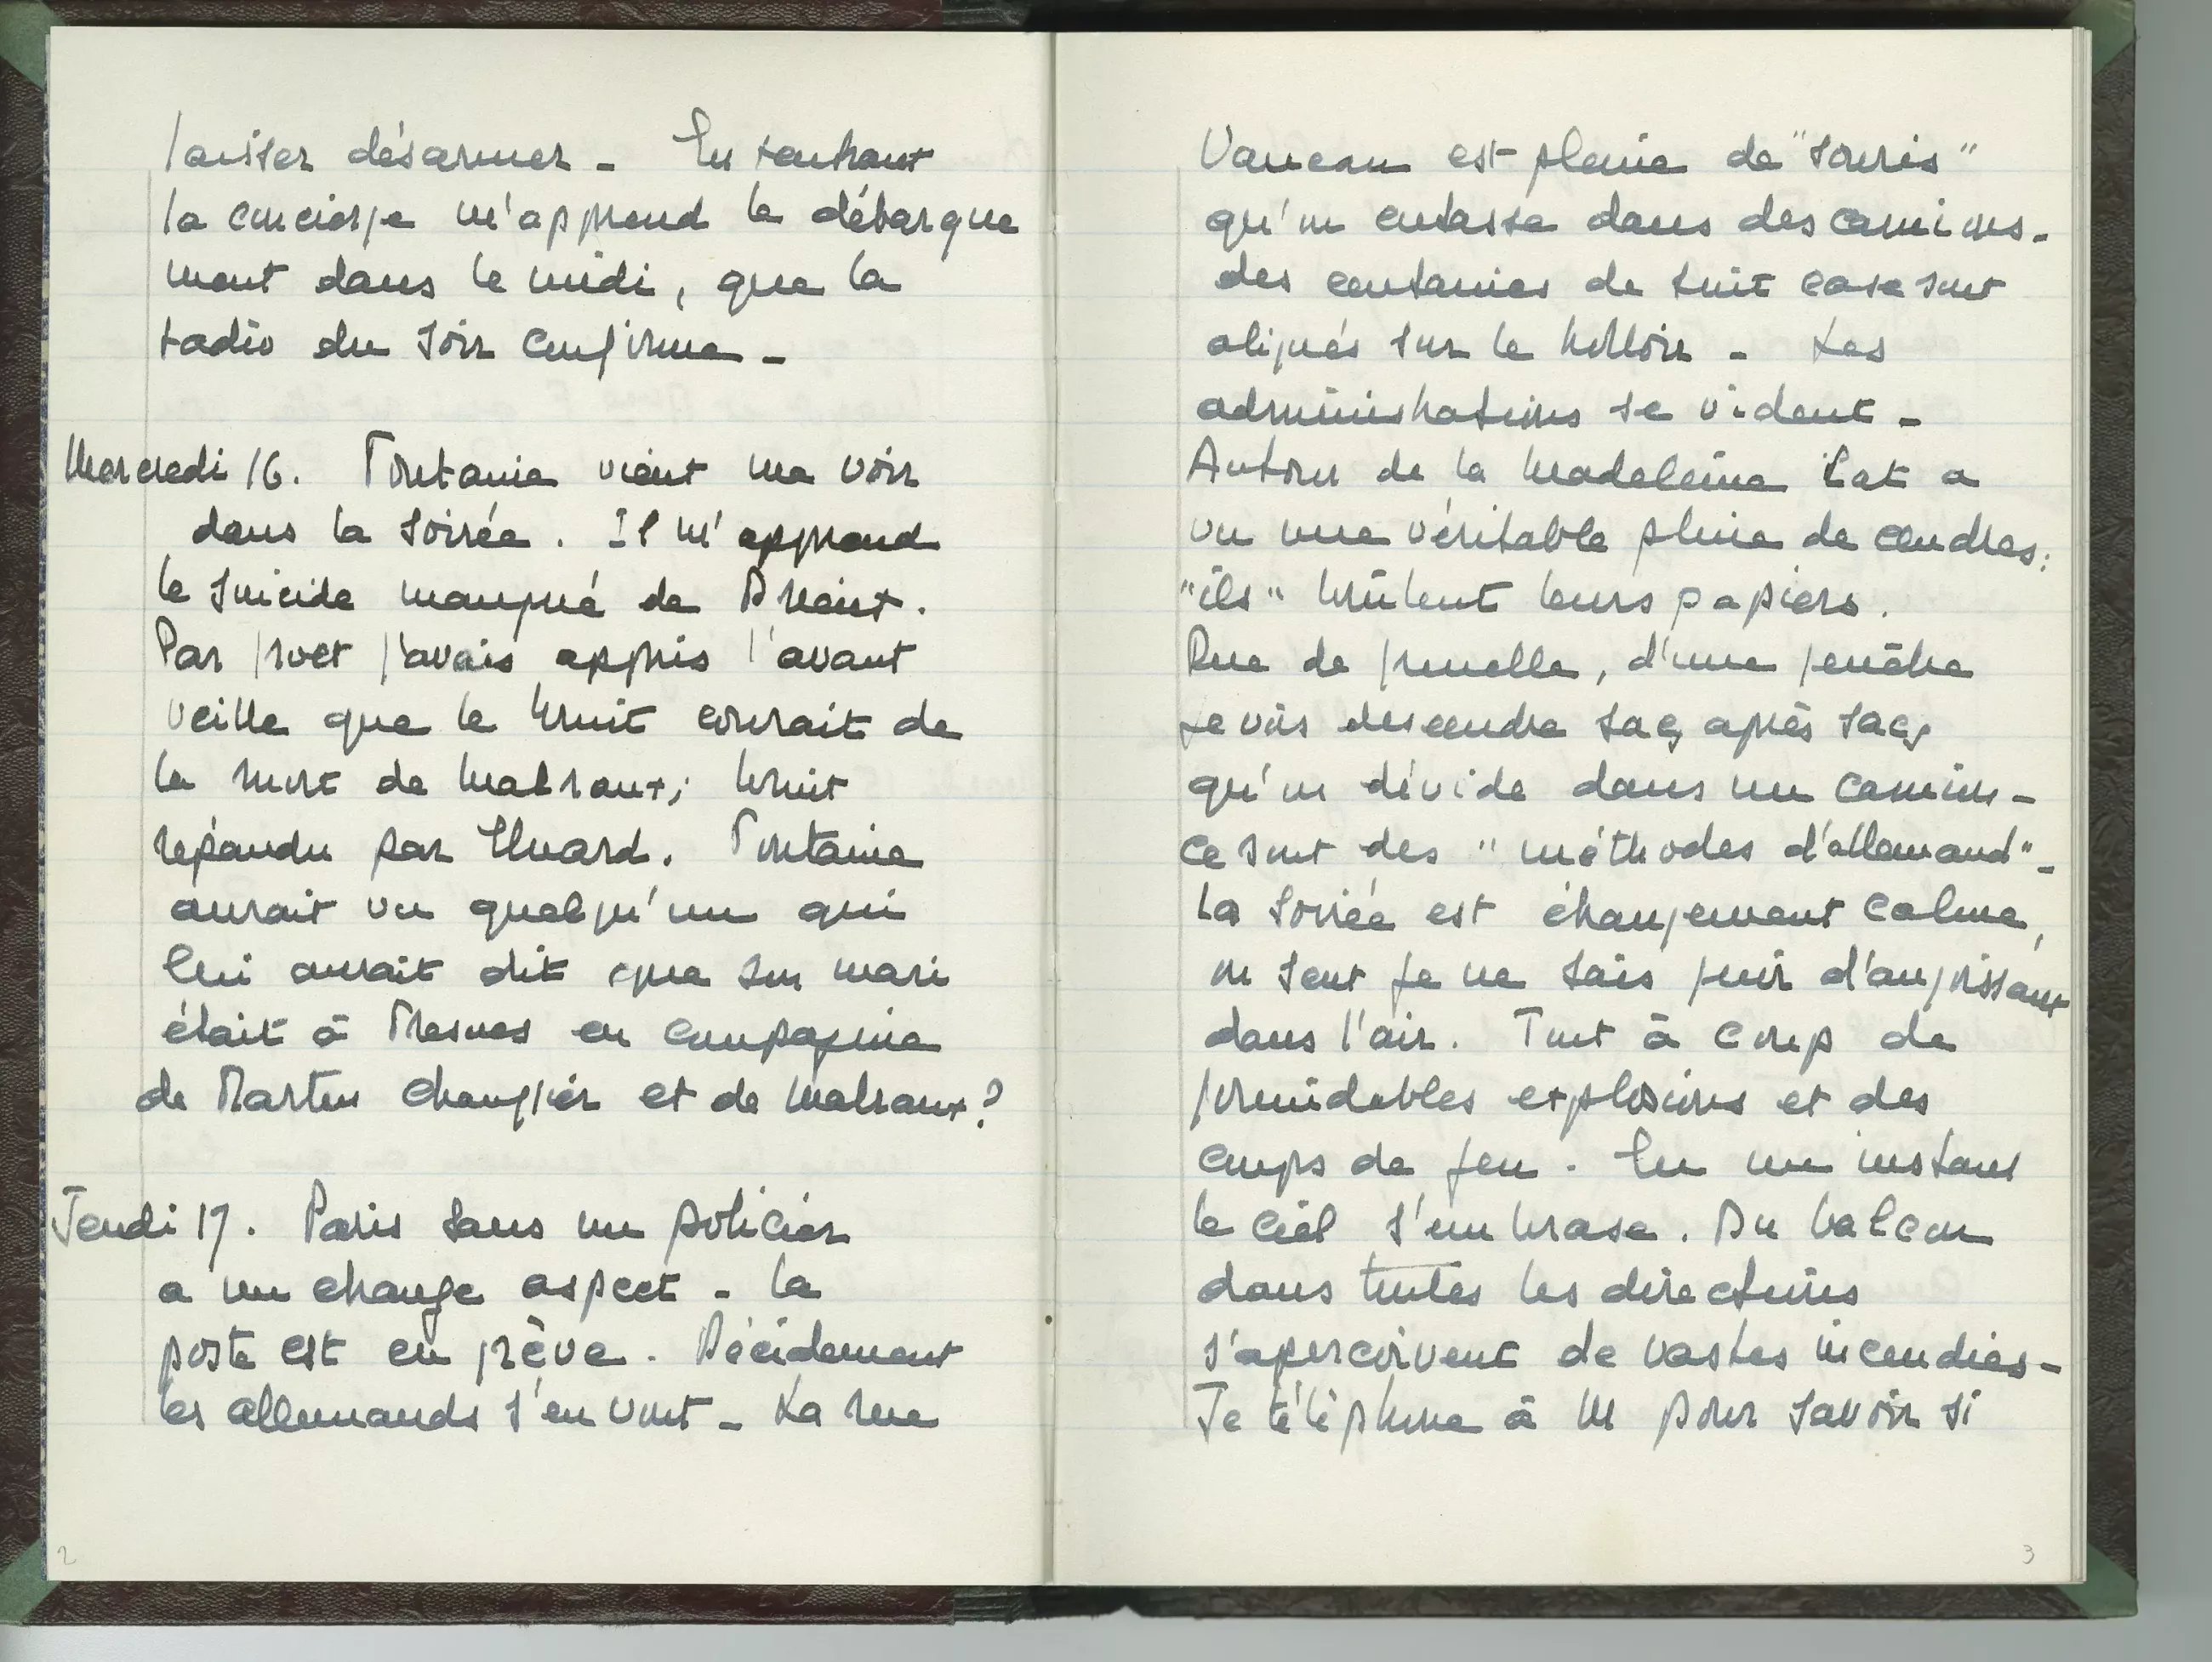 laisser désarmer - En rentrant
la concierge m'apprend le débarque
ment dans le midi, que la
radio du soir confirme -
Mercredi 16. Fontaine vient me voir
dans la soirée. Il m'apprend
le suicide manqué de Drieu.
Par Groet j'avais appris l'avant
veille que le bruit courait de
la mort de Malraux; bruit
répandu par Eluard. Fontaine
aurait vu quelqu'un qui
lui aurait dit que son mari
était à Fresnes en compagnie
de Martin Chauffier et de Malraux?
Jeudi 17. Paris sans un policier
a un change aspect - la
poste est en grève. Décidement
les allemands s'en vont - La rue
Vaneau est pleine de "souris"
qu'on entasse dans des camions -
des centaines de suit case sont
alignés sur le trottoir - Les
administrations se vident -
Autour de la Madeleine Cat a
vu une véritable pluie de cendres:
"ils" brûlent leurs papiers.
Rue de Grenelle, d'une fenêtre
je vois descendre sacs après sacs
qu'on dévide dans un camion -
ce sont des "méthodes d'allemand" -
La soirée est étrangement calme,
on sent je ne sais quoi d'angoissant
dans l'air. Tout à coup de
formidables explosions et des
coups de feu. En un instant
le ciel s'embrase. Du balcon
dans toutes les directions
s'apercoivent de vastes incendies -
Je téléphone à M pour savoir si
2
3